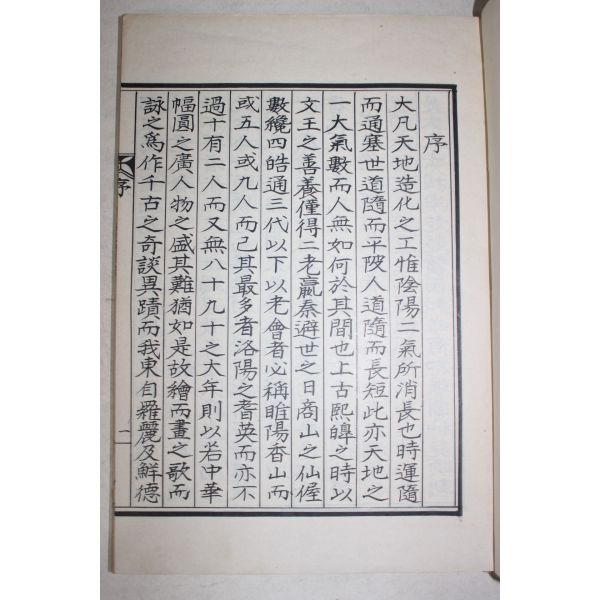 序
大凡天地造化之工惟陰陽二氣所消長也時運隨
而通塞世道隨而平陂人道隨而長短此亦天地之
一大氣數而人無如何於其間也上古熙皥之時以
文王之善養僅得二老嬴秦避世之日商山之仙僅
數纔四皓通三代以下以老會者必稱睢陽香山而
或五人或九人而已其最多者洛陽之耆英而亦不
過十有二人而又無八十九十之大年則以若中華
幅圓之廣人物之盛其難猶如是故繪而畫之歌而
詠之爲作千古之奇談異蹟而我東自羅麗及鮮德
序
一